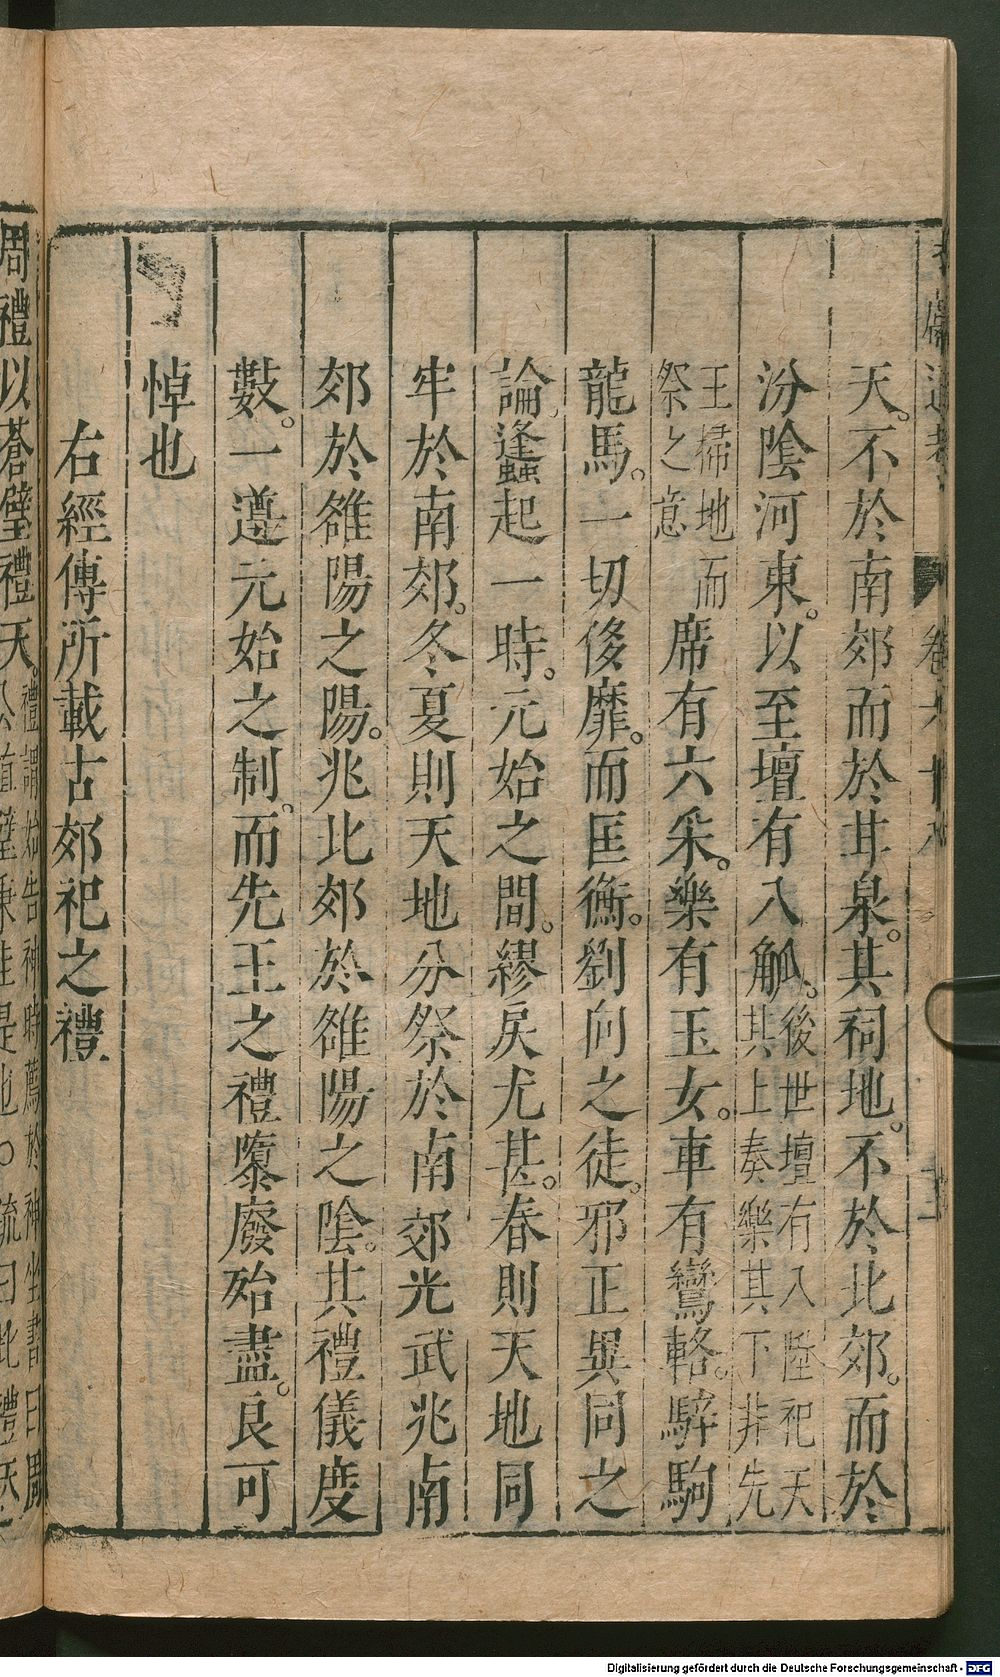 天。不於南郊而於甘泉。其祠地。不於北郊。而於
汾陰河東。以至壇有八觚。後世壇有八陛祀天
其上奏樂其下非先
王掃地而
祭之意
席有六采。樂有玉女。車有鸞輅。騂駒
龍馬。一切侈靡。而匡衡。劉向之徒。邪正異同之
論。蠭起一時。元始之間。繆戾尤甚。春則天地同
牢於南郊。冬夏則天地分祭於南郊光武兆南
郊於雒陽之陽。兆北郊於雒陽之陰。其禮儀度
數。一遵元始之制。而先王之禮隳廢殆盡。良可
悼也
右經傳所載古郊祀之禮
周禮以蒼璧禮天。
禮謂始告神時薦於神坐書曰周
公植璧秉圭是也○疏曰此禮天
Digitalisierung gefördert durch die Deutsche Forschungsgemeinschaft - DFG